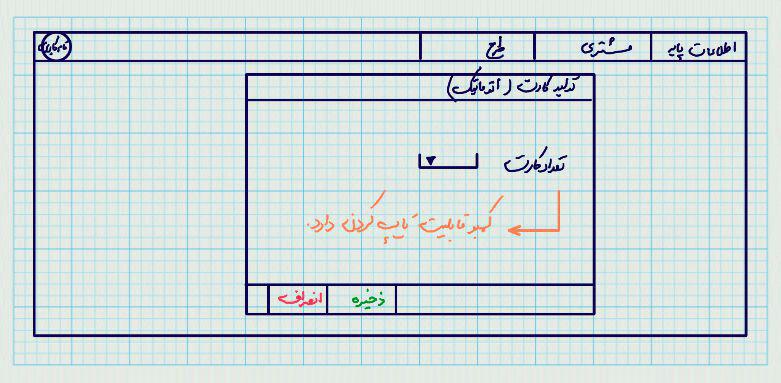 اطلاعات پایه
مشتری
طرح
نام کاربری
تولید کارت (اتوماتیک)
تعداد کارت
کمبو قابلیت تایپ کردن دارد.
ذخیره
انصراف